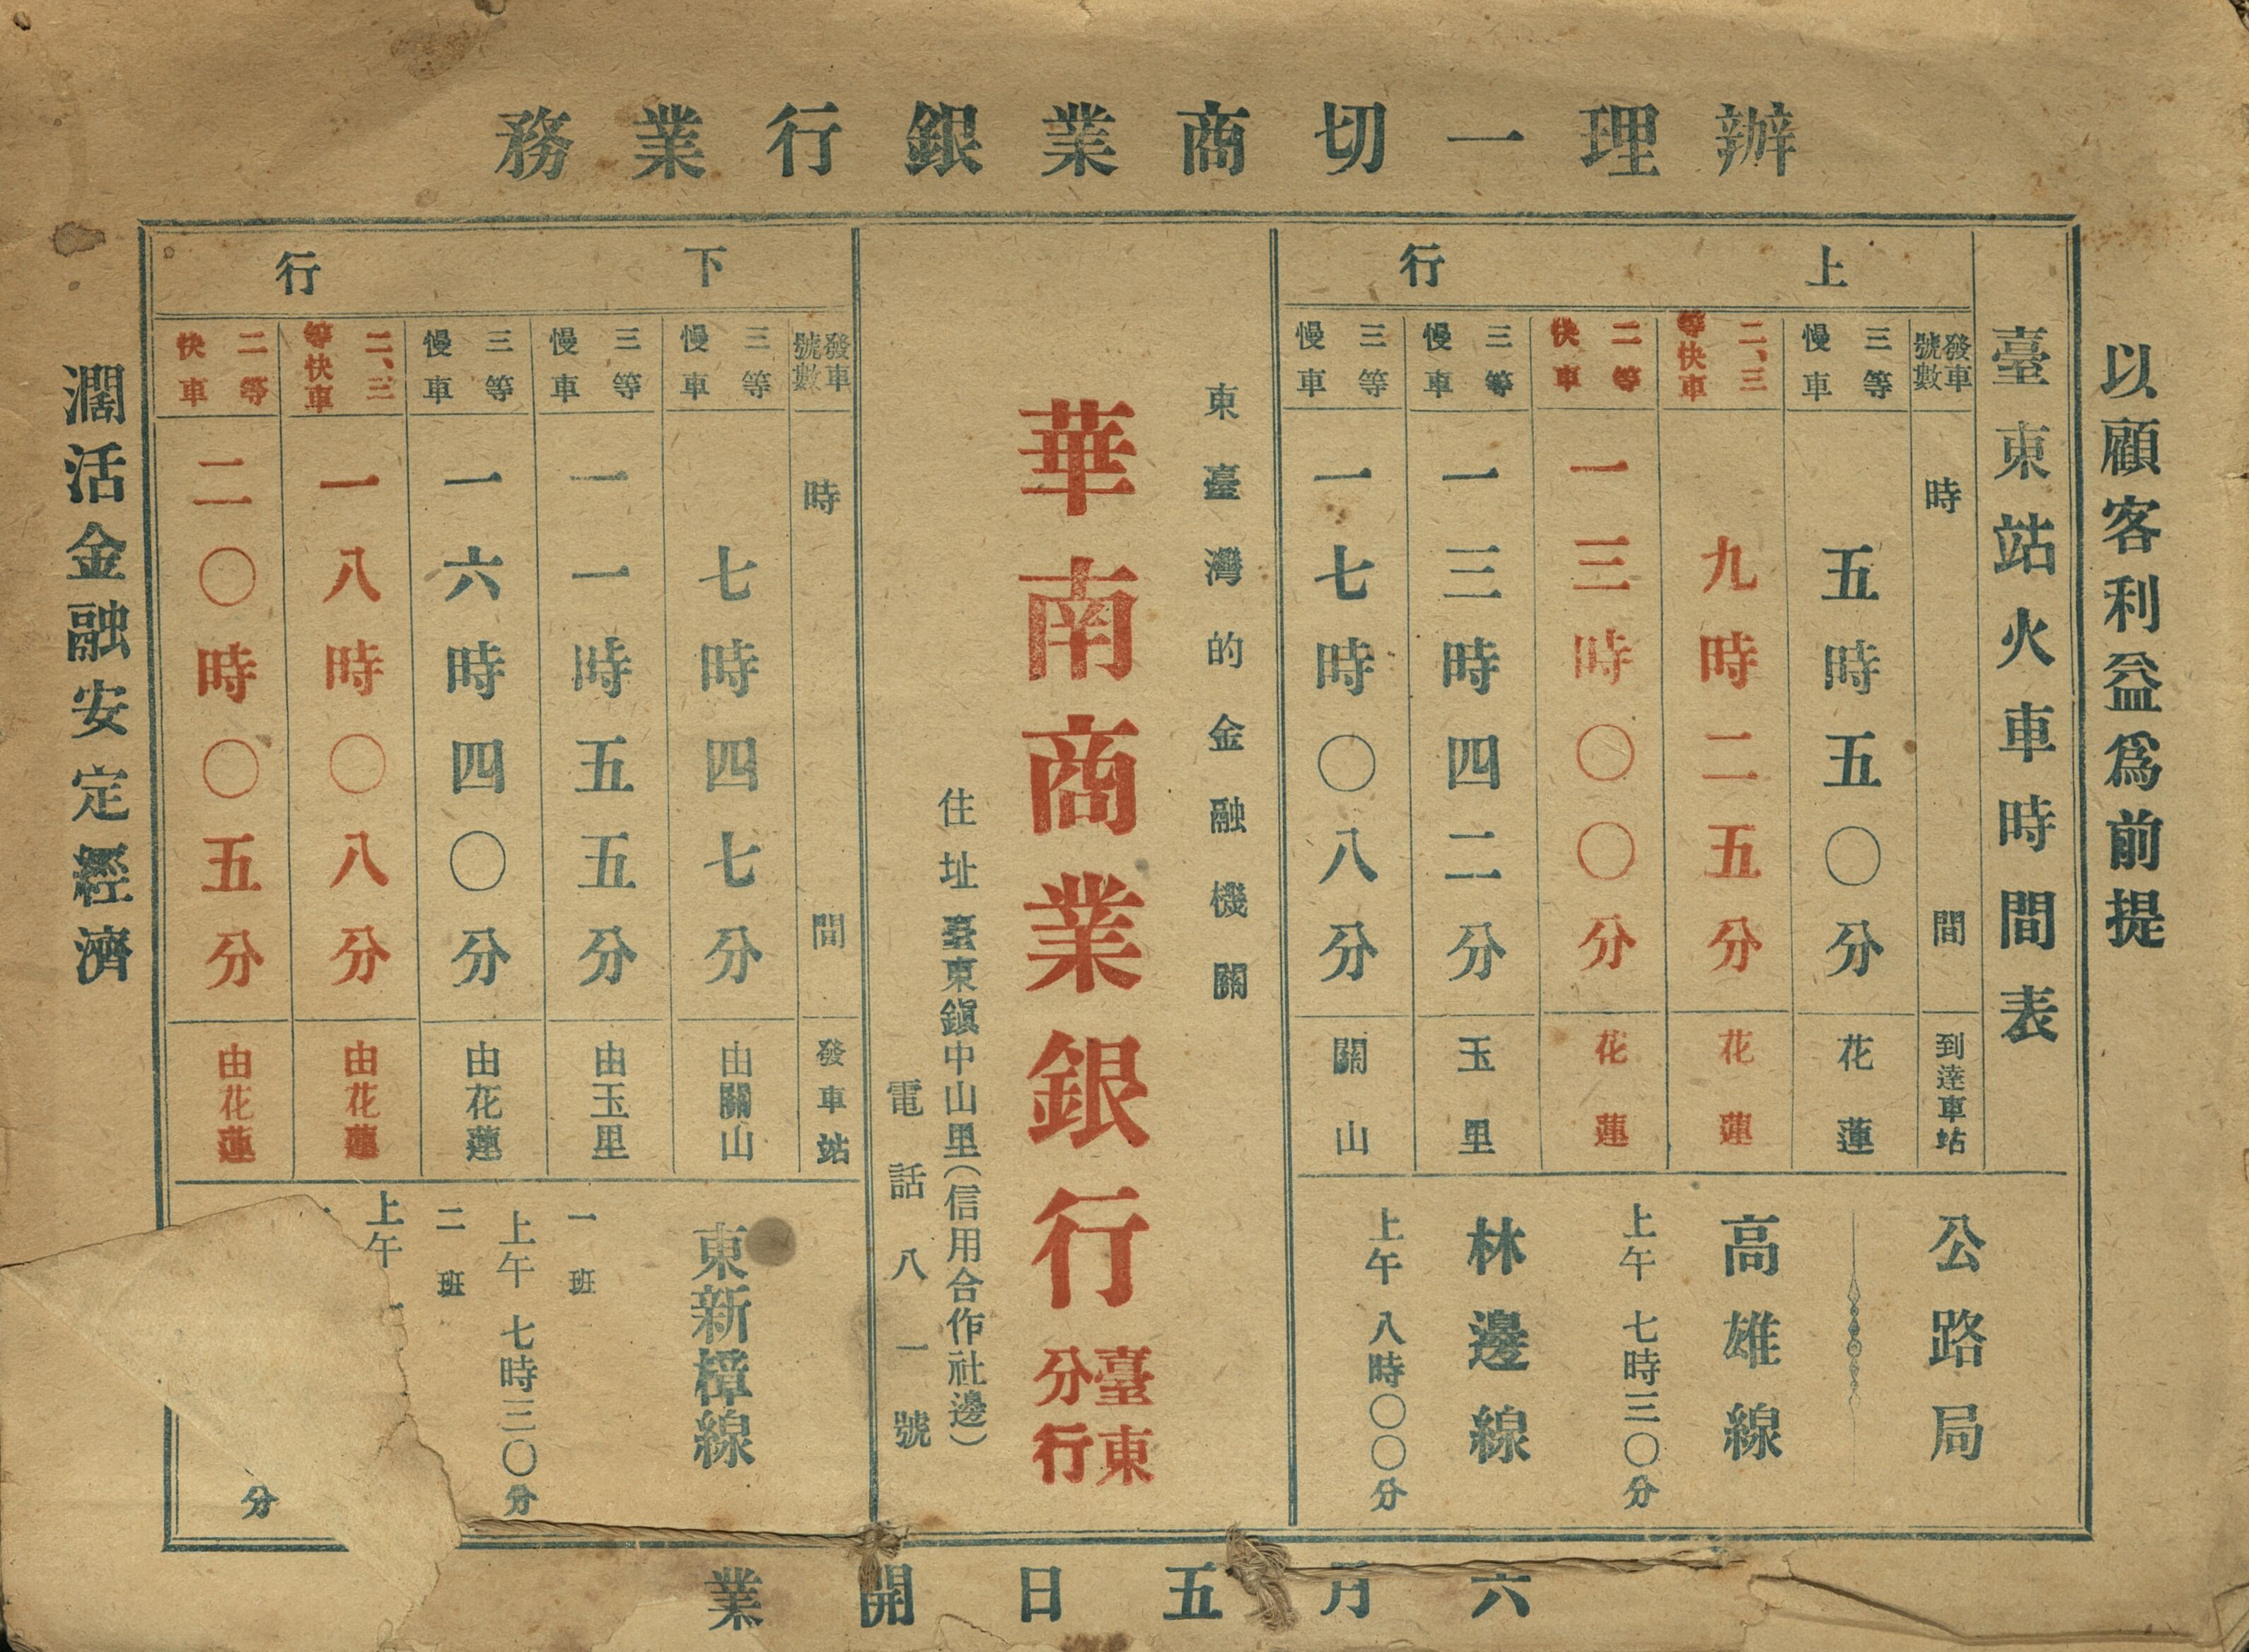 辦理一切商業銀行業務
以顧客利益爲前提
臺東站火車時間表
上行
發車號數
時間
到達車站
三等慢車
五時五〇分
花蓮
二、三等快車
九時二五分
花蓮
二等快車
一三時〇〇分
花蓮
三等慢車
一三時四二分
玉里
三等慢車
一七時〇八分
關山
公路局
高雄線
上午七時三〇分
林邊線
上午八時〇〇分
東臺灣的金融機關
華南商業銀行臺東分行
住址臺東鎭中山里(信用合作社邊)
電話八一號
下行
發車號數
時間
發車站
三等慢車
七時四七分
由關山
三等慢車
一一時五五分
由玉里
三等慢車
一六時四〇分
由花蓮
二、三等快車
一八時〇八分
由花蓮
二等快車
二〇時〇五分
由花蓮
東新樟線
一班
上午七時三〇分
二班
上午
分
濶活金融安定經濟
六月五日開業